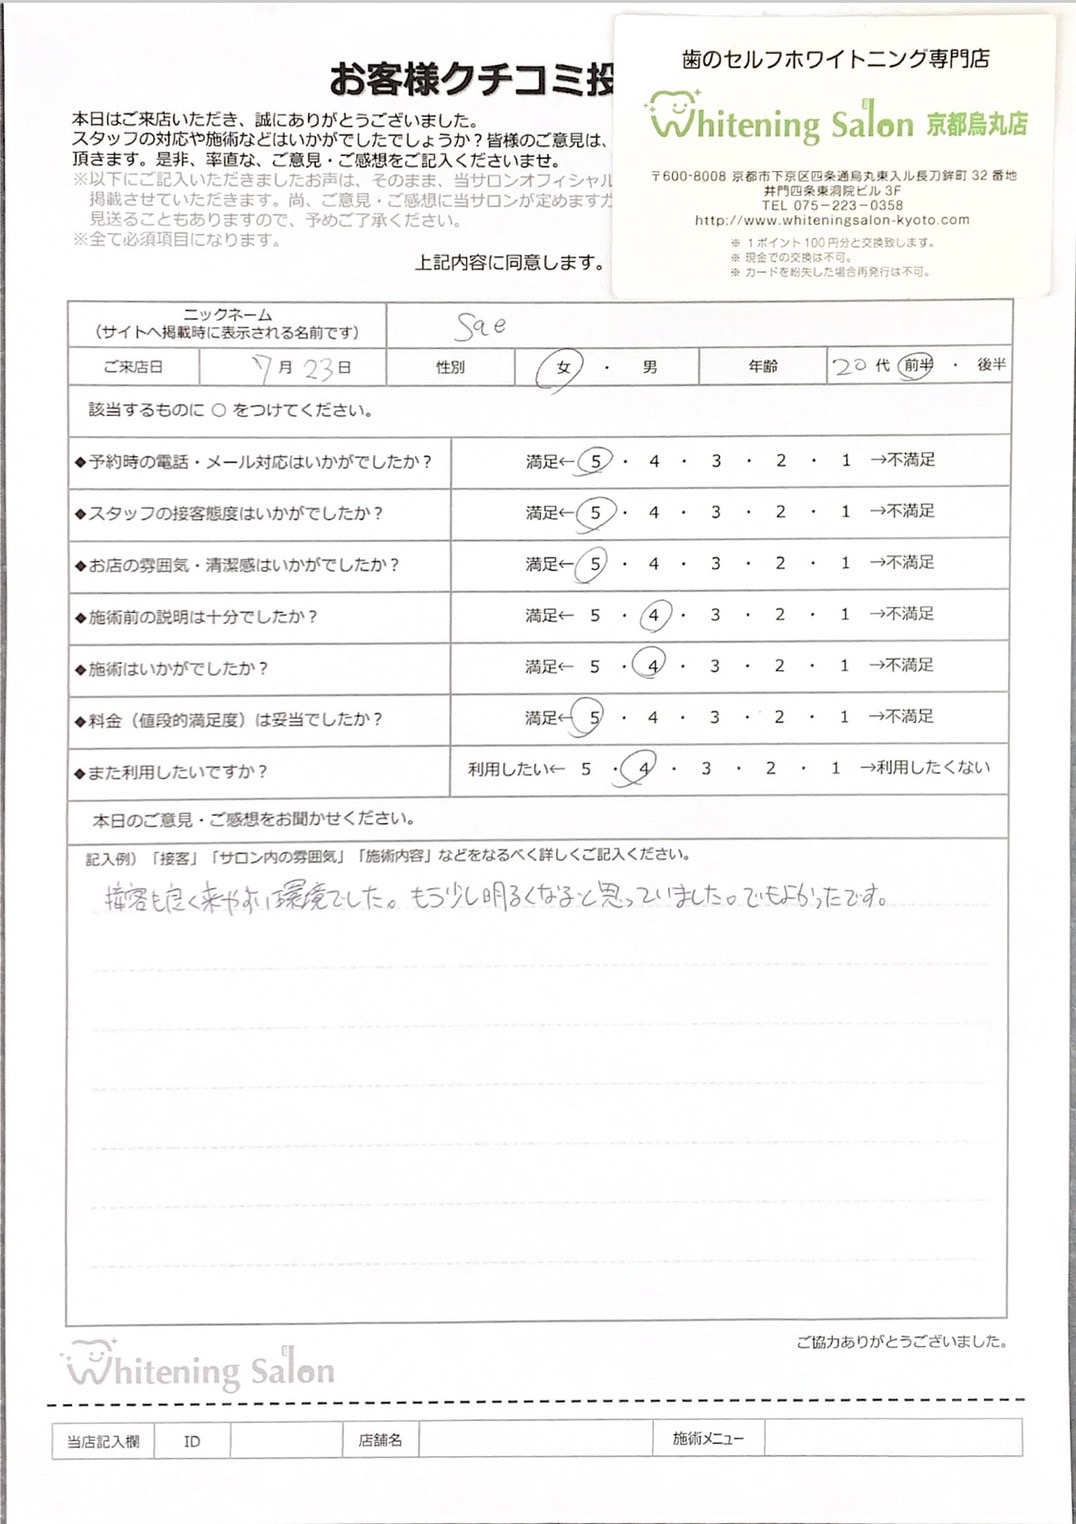 お客様クチコミ投
本日はご来店いただき、誠にありがとうございました。
スタッフの対応や施術などはいかがでしたでしょうか？皆様のご意見は、
頂きます。是非、率直な、ご意見・ご感想をご記入くださいませ。
※以下にご記入いただきましたお声は、そのまま、当サロンオフィシャル
掲載させていただきます。尚、ご意見・ご感想に当サロンが定めますガ
見送ることもありますので、予めご了承ください。
※全て必須項目になります。
上記内容に同意します。
歯のセルフホワイトニング専門店
Whitening Salon 京都烏丸店
〒600-8008 京都市下京区四条通烏丸東入ル長刀鉾町 32 番地
井門四条東洞院ビル 3F
TEL 075-223-0358
http://www.whiteningsalon-kyoto.com
※ 1ポイント100円分と交換致します。
※ 現金での交換は不可。
※ カードを紛失した場合再発行は不可。
ニックネーム
（サイトへ掲載時に表示される名前です） Sae
ご来店日 7月23日 性別 女 ・ 男 年齢 20代 前半 ・ 後半
該当するものに ○ をつけてください。
◆予約時の電話・メール対応はいかがでしたか？ 満足← 5 ・ 4 ・ 3 ・ 2 ・ 1 →不満足
◆スタッフの接客態度はいかがでしたか？ 満足← 5 ・ 4 ・ 3 ・ 2 ・ 1 →不満足
◆お店の雰囲気・清潔感はいかがでしたか？ 満足← 5 ・ 4 ・ 3 ・ 2 ・ 1 →不満足
◆施術前の説明は十分でしたか？ 満足← 5 ・ 4 ・ 3 ・ 2 ・ 1 →不満足
◆施術はいかがでしたか？ 満足← 5 ・ 4 ・ 3 ・ 2 ・ 1 →不満足
◆料金（値段的満足度）は妥当でしたか？ 満足← 5 ・ 4 ・ 3 ・ 2 ・ 1 →不満足
◆また利用したいですか？ 利用したい← 5 ・ 4 ・ 3 ・ 2 ・ 1 →利用したくない
本日のご意見・ご感想をお聞かせください。
記入例）「接客」「サロン内の雰囲気」「施術内容」などをなるべく詳しくご記入ください。
接客も良く来やすい環境でした。もう少し明るくなると思っていました。でもよかったです。
ご協力ありがとうございました。
Whitening Salon
当店記入欄 ID 店舗名 施術メニュー